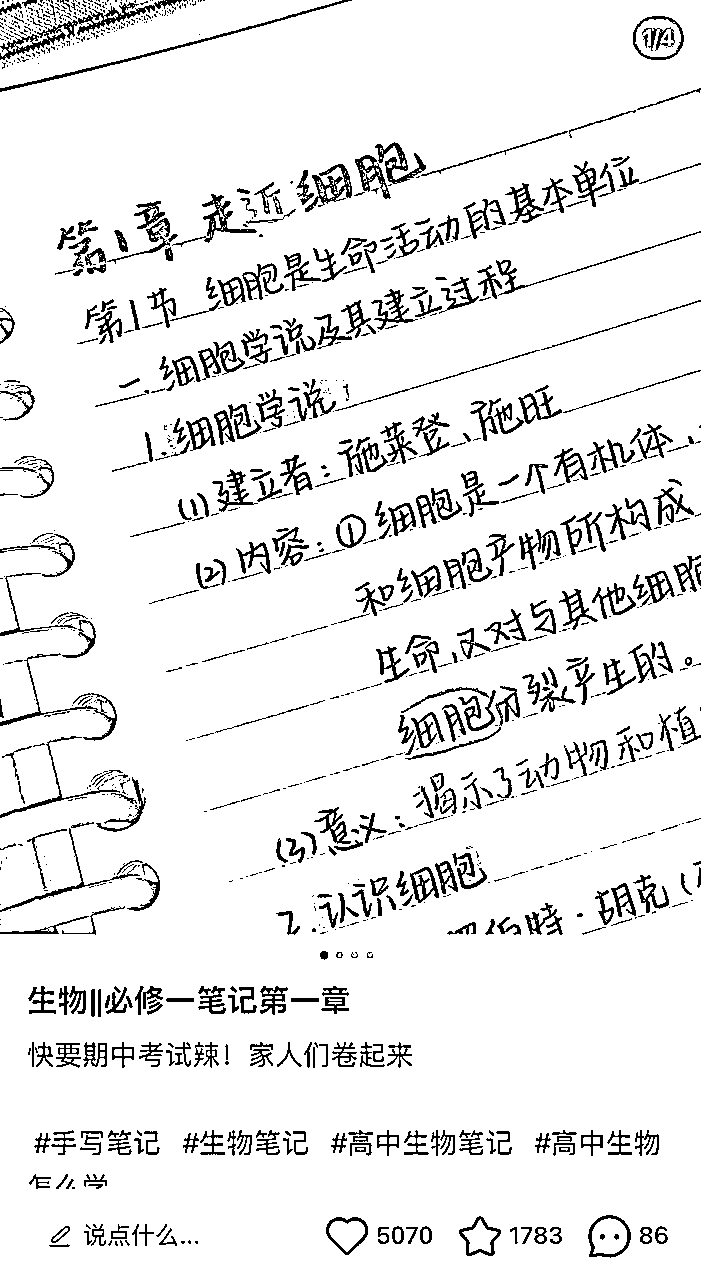 1/4
第1章 走近细胞
第1节 细胞是生命活动的基本单位
一.细胞学说及其建立过程
1.细胞学说
(1)建立者：施莱登、施旺
(2)内容：①细胞是一个有机体，
和细胞产物所构成
生命，又对与其他细胞
细胞分裂产生的。
(3)意义：揭示了动物和植
2.认识细胞
罗伯特·胡克（
生物||必修一笔记第一章
快要期中考试辣！家人们卷起来
#手写笔记 #生物笔记 #高中生物笔记 #高中生物
怎么学
说点什么... 5070 1783 86